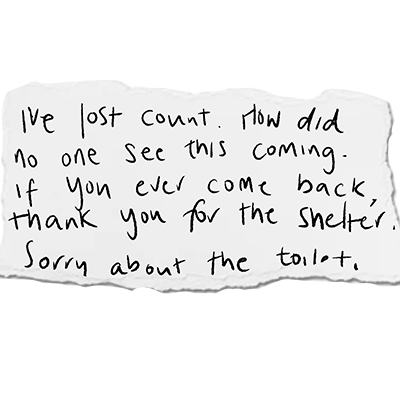 I've lost count. How did
no one see this coming.
if you ever come back,
thank you for the shelter.
Sorry about the toilet.